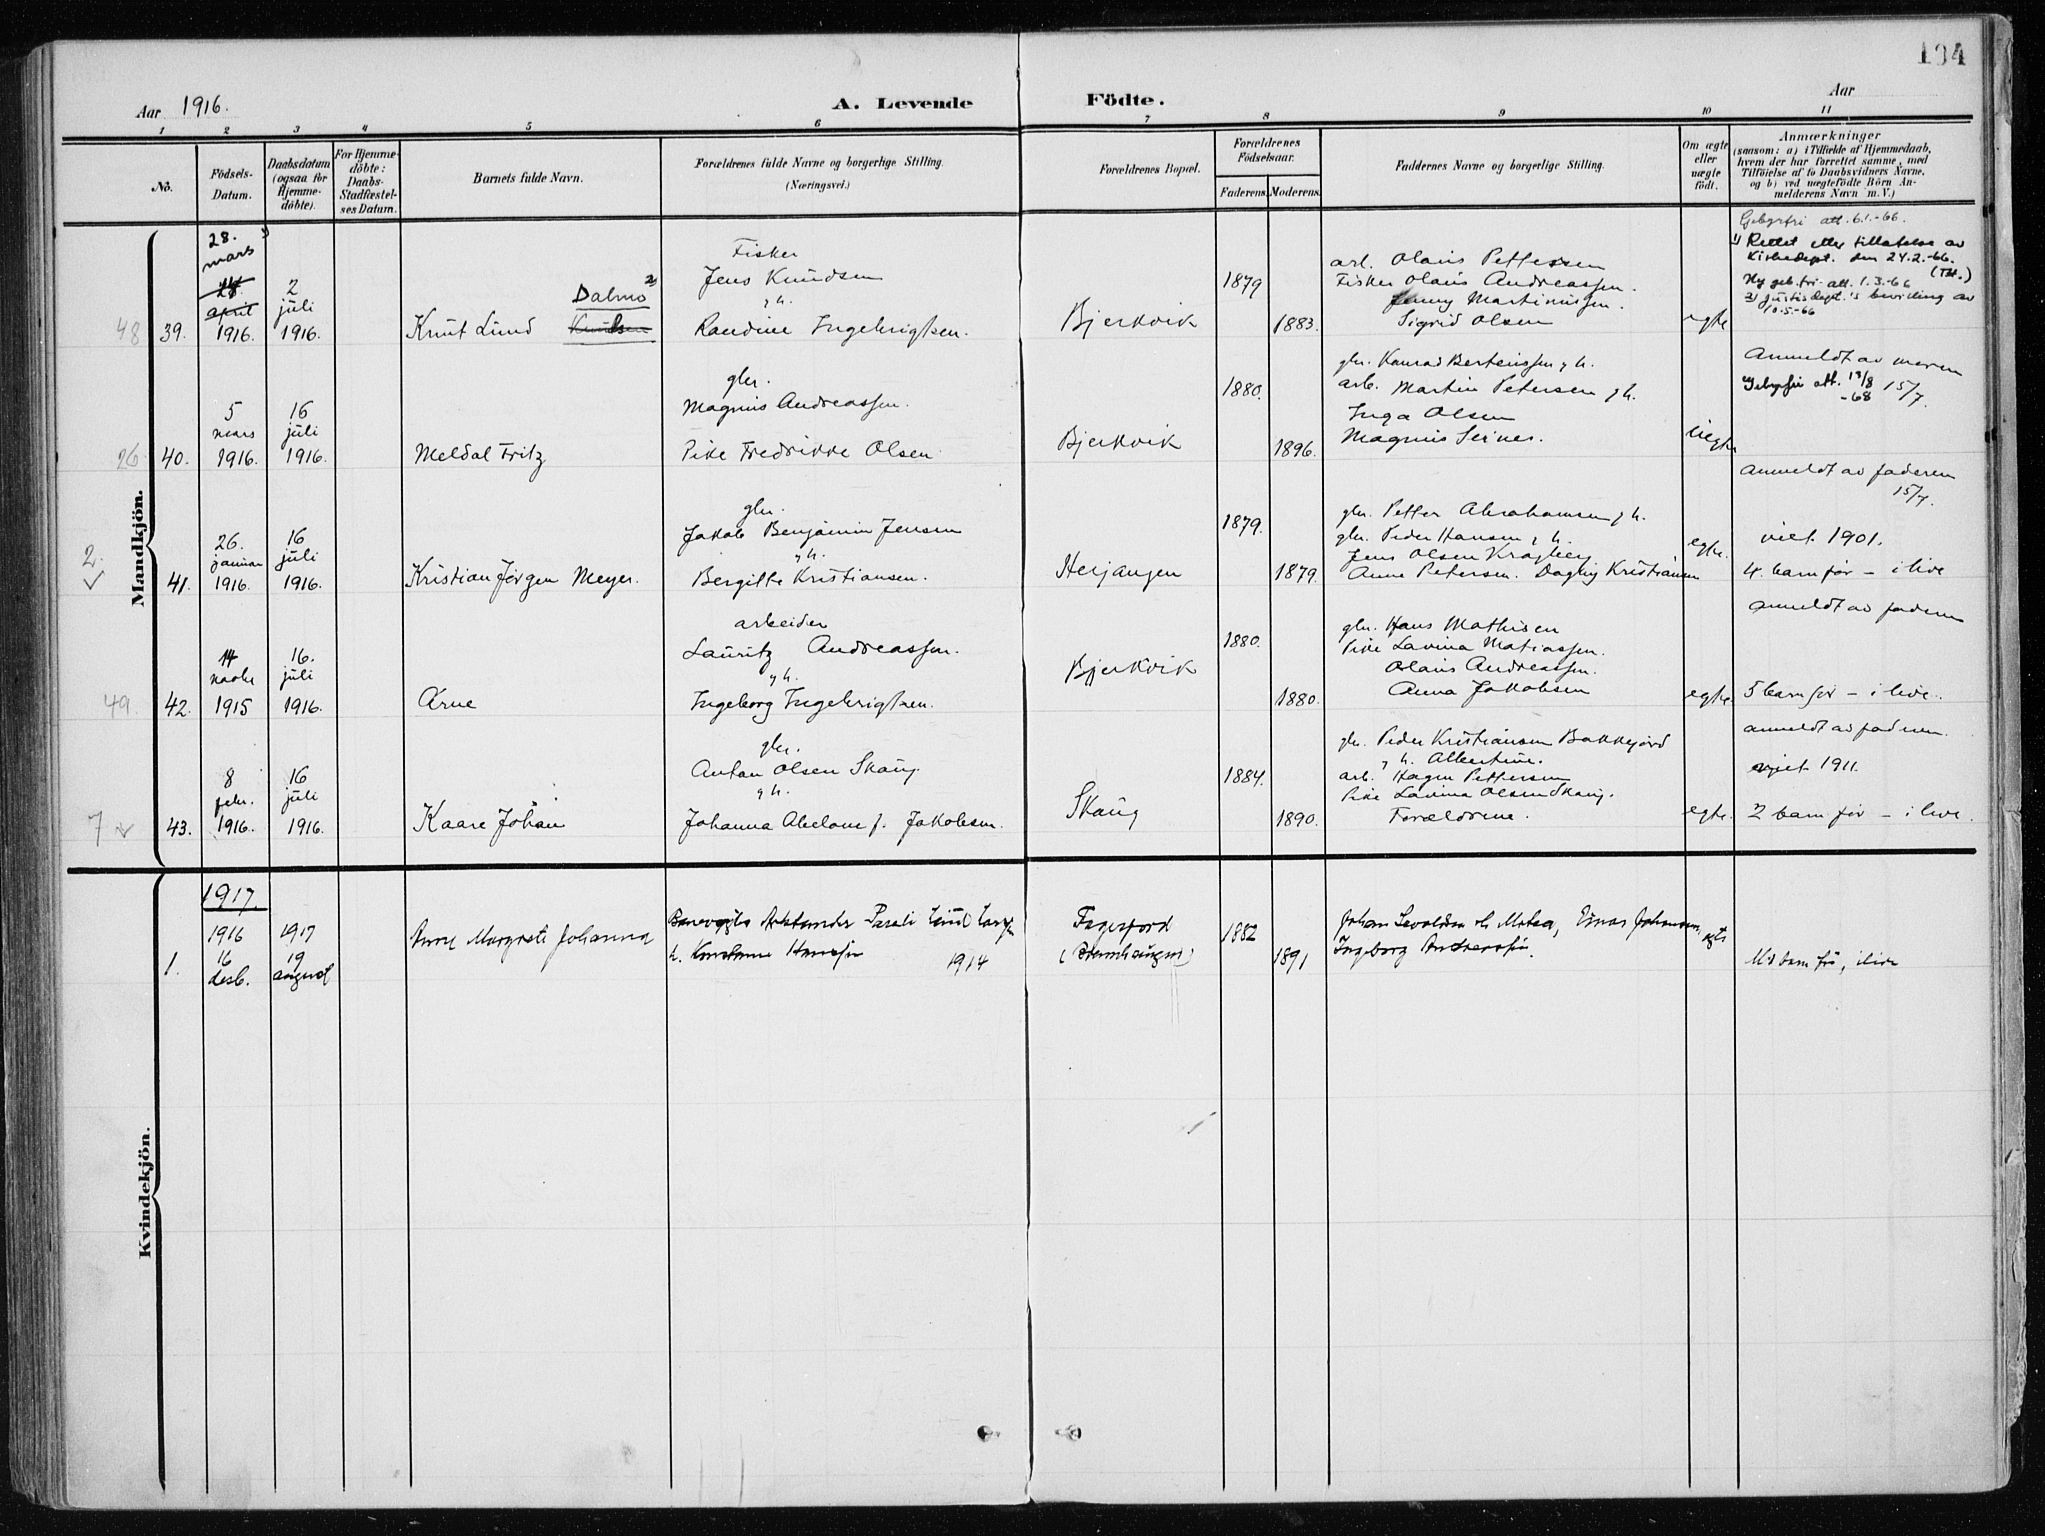 134
Aar 1916.
A. Levende Födte.
Aar
1 2 3 4 5 6 7 8 9 10 11
No.
Födsels-Datum.
Daabsdatum (ogsaa for Hjemme-döbte).
For Hjemme-döbte: Daabs-Stadfæstel-ses Datum.
Barnets fulde Navn.
Forældrenes fulde Navne og borgerlige Stilling.
(Næringsvei.)
Forældrenes Bopæl.
Forældrenes Födselsaar.
Faderens. Moderens.
Faddernes Navne og borgerlige Stilling.
Om ægte eller uægte födt.
Anmærkninger
(saasom: a) i Tilfælde af Hjemmedaab,
hvem der har forrettet samme, med
Tilföielse af to Daabsvidners Navne,
og b) ved uægtefödte Börn An-
melderens Navn m. V.)
Mandkjön.
48
39.
28. 1)
mars
24.
april
1916.
2
juli
1916.
Dalmo 2)
Knut Lund Knudsen
Fisker
Jens Knudsen
g h.
Randine Ingebrigtsen.
Bjerkvik
1879
1883.
arb. Olaus Pettersen
Fisker Olaus Andreassen.
Jenny Martinussen.
Sigrid Olsen
egte
Gebyrfri att. 6.1.-66.
1) Rettet etter tillatelse av
Kirkedept. den 24.2.-66.
(Tbt.)
Ny geb.fri. att. 1.3.-66
2) Justisdept.'s bevilling av
10.5.-66
26
40.
5
mars
1916.
16
juli
1916.
Meldal Fritz
gbr.
Magnus Andreassen.
Pike Fredrikke Olsen
Bjerkvik
1880.
1896.
gbr. Konrad Berteussen g h.
arb. Martin Petersen g h.
Inga Olsen
Magnus Seines.
uegte
Anmeldt av moren
15/7.
Gebyrfri att. 13/8
-68
2.
41.
26.
januar
1916.
16
juli
1916.
Kristian Jörgen Meyer.
gbr.
Jakob Benjamin Jensen
g h.
Bergitte Kristiansen.
Herjangen
1879.
1879.
gbr. Petter Abrahamsen g h.
gbr. Peder Hansen g h.
Jens Olsen Kragberg
Anne Petersen. Dagny Kristiansen
egte.
anmeldt av faderen
15/7.
viet 1901.
4. barn før – i live
49.
42.
14
1915
16.
juli
1916.
Arne
arbeider
Lauritz Andreassen.
g h.
Ingeborg Ingebrigtsen.
Bjerkvik
1880.
1880.
gbr. Hans Mathisen
Pike Lavina Matiassen.
Olaus Andreassen.
Anna Jakobsen
egte.
anmeldt av faderen
5 barn før – i live.
7
43.
8
febr.
1916.
16
juli
1916.
Kaare Johan
gbr.
Anton Olsen Skaug.
g h.
Johanna Abelone f. Jakobsen.
Skaug
1884.
1890.
gbr. Peder Kristiansen Bakkejord
g h. Albertine.
arb. Hagen Pettersen
Pike Lavina Olsen Skaug.
Forældrene.
egte.
anmeldt av faderen.
viet 1911.
2 barn før – i live.
Kvindekjön.
1917.
1.
1916
16
desb.
1917
19
august
Anne Margrete Johanna
Banevogts Assistander Pareli Lund
h. Konstanse Hansen 1914
Fagerfjord
1882
1891
Johan Sevaldsen, Einar Johansen,
Ingeborg Andreassen.
egte
barn før, ilive